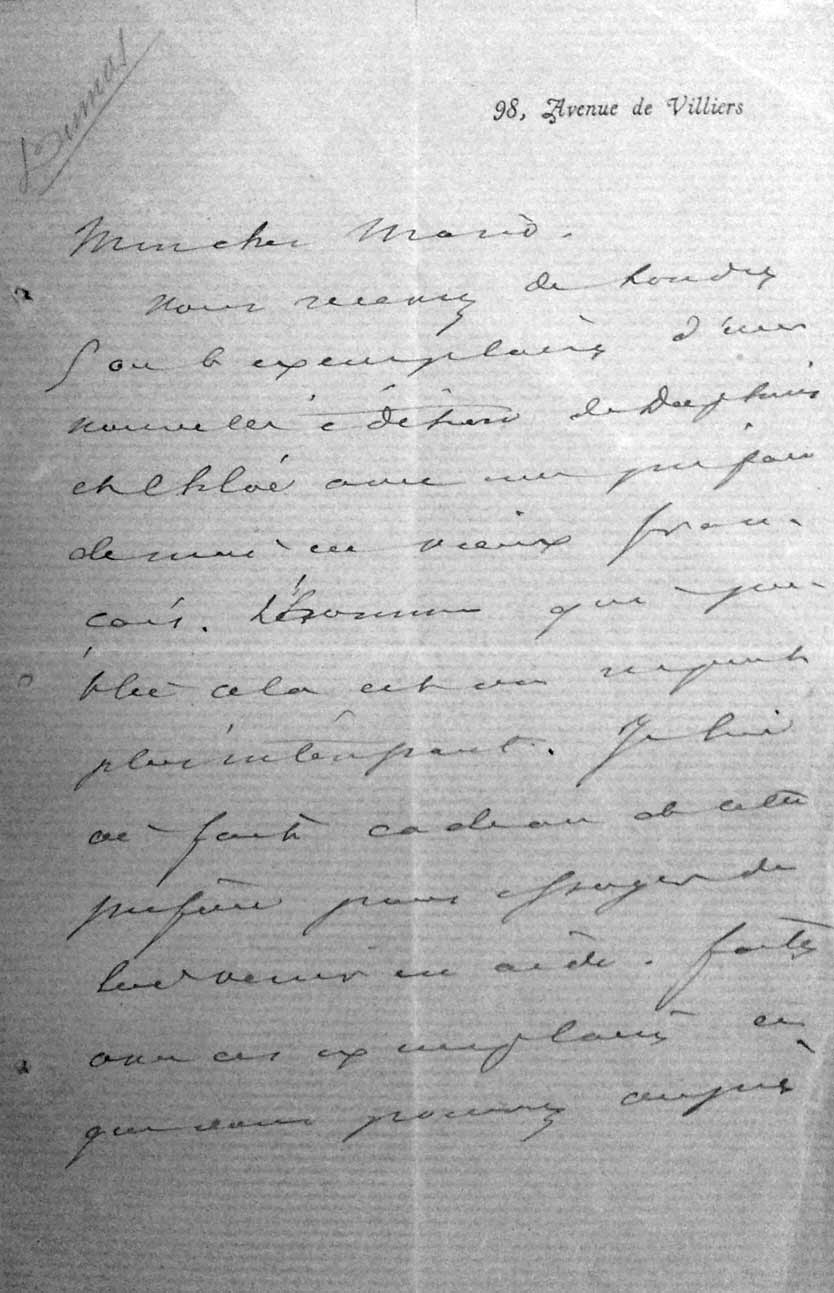 Dumas
98, Avenue de Villiers
Mon cher Mario.
vous recevrez de Londres
5 ou 6 exemplaires d'une
nouvelle édition de Daphnis
et Chloé avec une préface
de moi en vieux fran-
çais. L'homme qui pu-
blie cela est on ne peut
plus intéressant. Je lui
ai fait cadeau de cette
préface pour essayer de
lui venir en aide. faites
avec ces exemplaires ce
que vous pourrez auprès